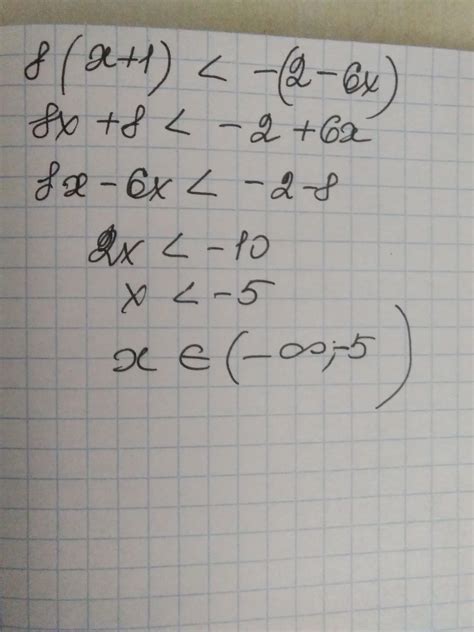 8(x+1) < -(2-6x)
8x+8 < -2+6x
8x-6x < -2-8
2x < -10
x < -5
x ∈ (-∞;-5)